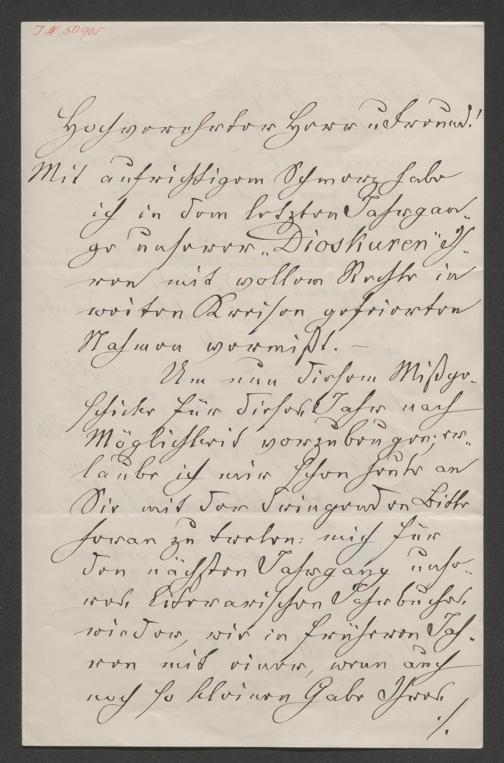 I.N. 50905
Hochverehrter Herr u Freund!
Mit aufrichtigem Schmerz habe
ich in dem letzten Jahrgan-
ge unserer „Dioskuren“ Ih-
ren mit vollem Rechte in
weiten Kreisen gefeierten
Nahmen vermißt. –
Um nun diesem Mißge-
schicke für dieses Jahr nach
Möglichkeit vorzubeugen, er-
laube ich mir schon heute an
Sie mit der dringenden Bitte
heran zu treten: mich für
den nächsten Jahrgang unse-
res literarischen Jahrbuches
wieder, wie in früheren Jah-
ren mit einer, wenn auch
noch so kleinen Gabe Ihres
./.